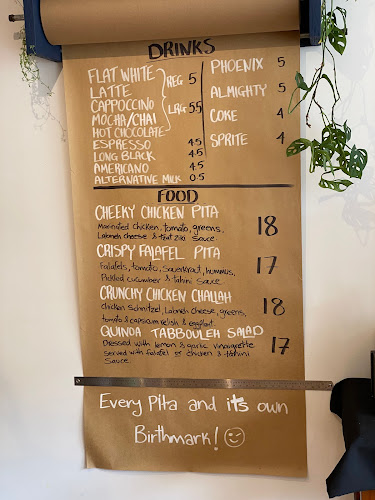 DRINKS
FLAT WHITE
LATTE
CAPPOCCINO
MOCHA/CHAI
HOT CHOCOLATE
REG 5
LRG 5.5
ESPRESSO 4.5
LONG BLACK 4.5
AMERICANO 4.5
ALTERNATIVE MILK 0.5
PHOENIX 5
ALMIGHTY 5
COKE 4
SPRITE 4
FOOD
CHEEKY CHICKEN PITA 18
Marinated chicken, tomato, greens,
Labneh cheese & tzat ziki sauce.
CRISPY FALAFEL PITA 17
Falafels, tomato, Sauerkraut, hummus,
Pickled cucumber & tahini sauce.
CRUNCHY CHICKEN CHALLAH 18
Chicken Schnitzel, Labneh cheese, greens,
tomato & capsicum relish & eggplant.
QUINOA TABBOULEH SALAD 17
Dressed with lemon & garlic vinaigrette
Served with falafel or chicken & tahini
Sauce.
Every Pita and it's own
Birthmark!